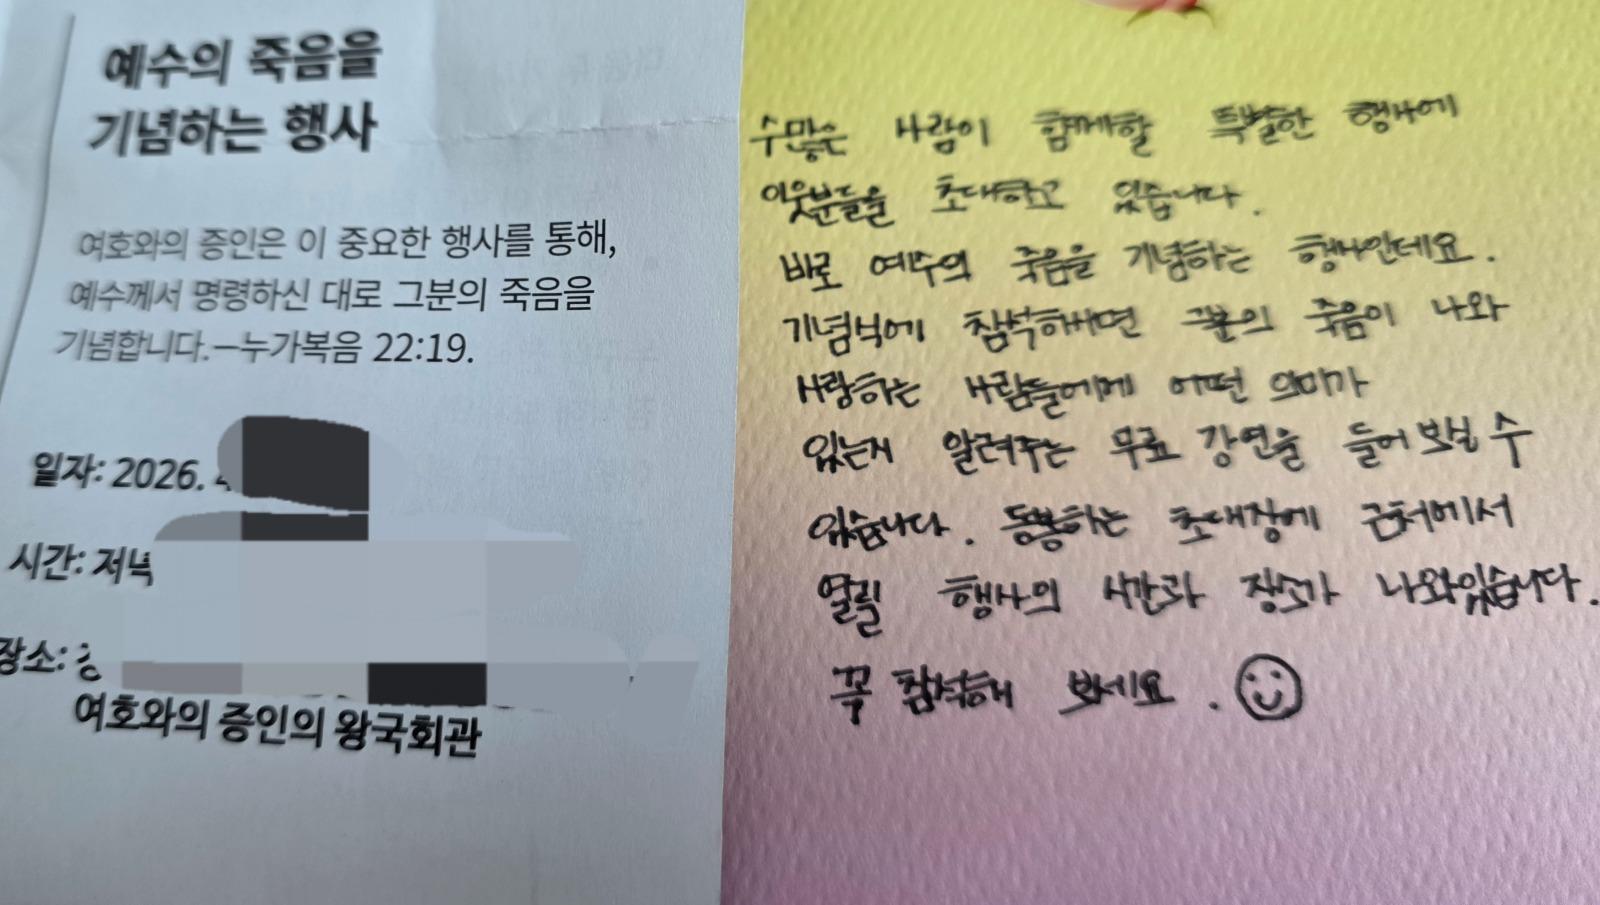 예수의 죽음을
기념하는 행사
여호와의 증인은 이 중요한 행사를 통해,
예수께서 명령하신 대로 그분의 죽음을
기념합니다.—누가복음 22:19.
일자: 2026.
시간: 저녁
장소:
여호와의 증인의 왕국회관
수많은 사람이 함께할 특별한 행사에
이웃분들을 초대하고 있습니다.
바로 예수의 죽음을 기념하는 행사인데요.
기념식에 참석하시면 그분의 죽음이 나와
사랑하는 사람들에게 어떤 의미가
있는지 알려주는 무료 강연을 들어보실 수
있습니다. 동봉하는 초대장에 근처에서
열릴 행사의 시간과 장소가 나와있습니다.
꼭 참석해 보세요.